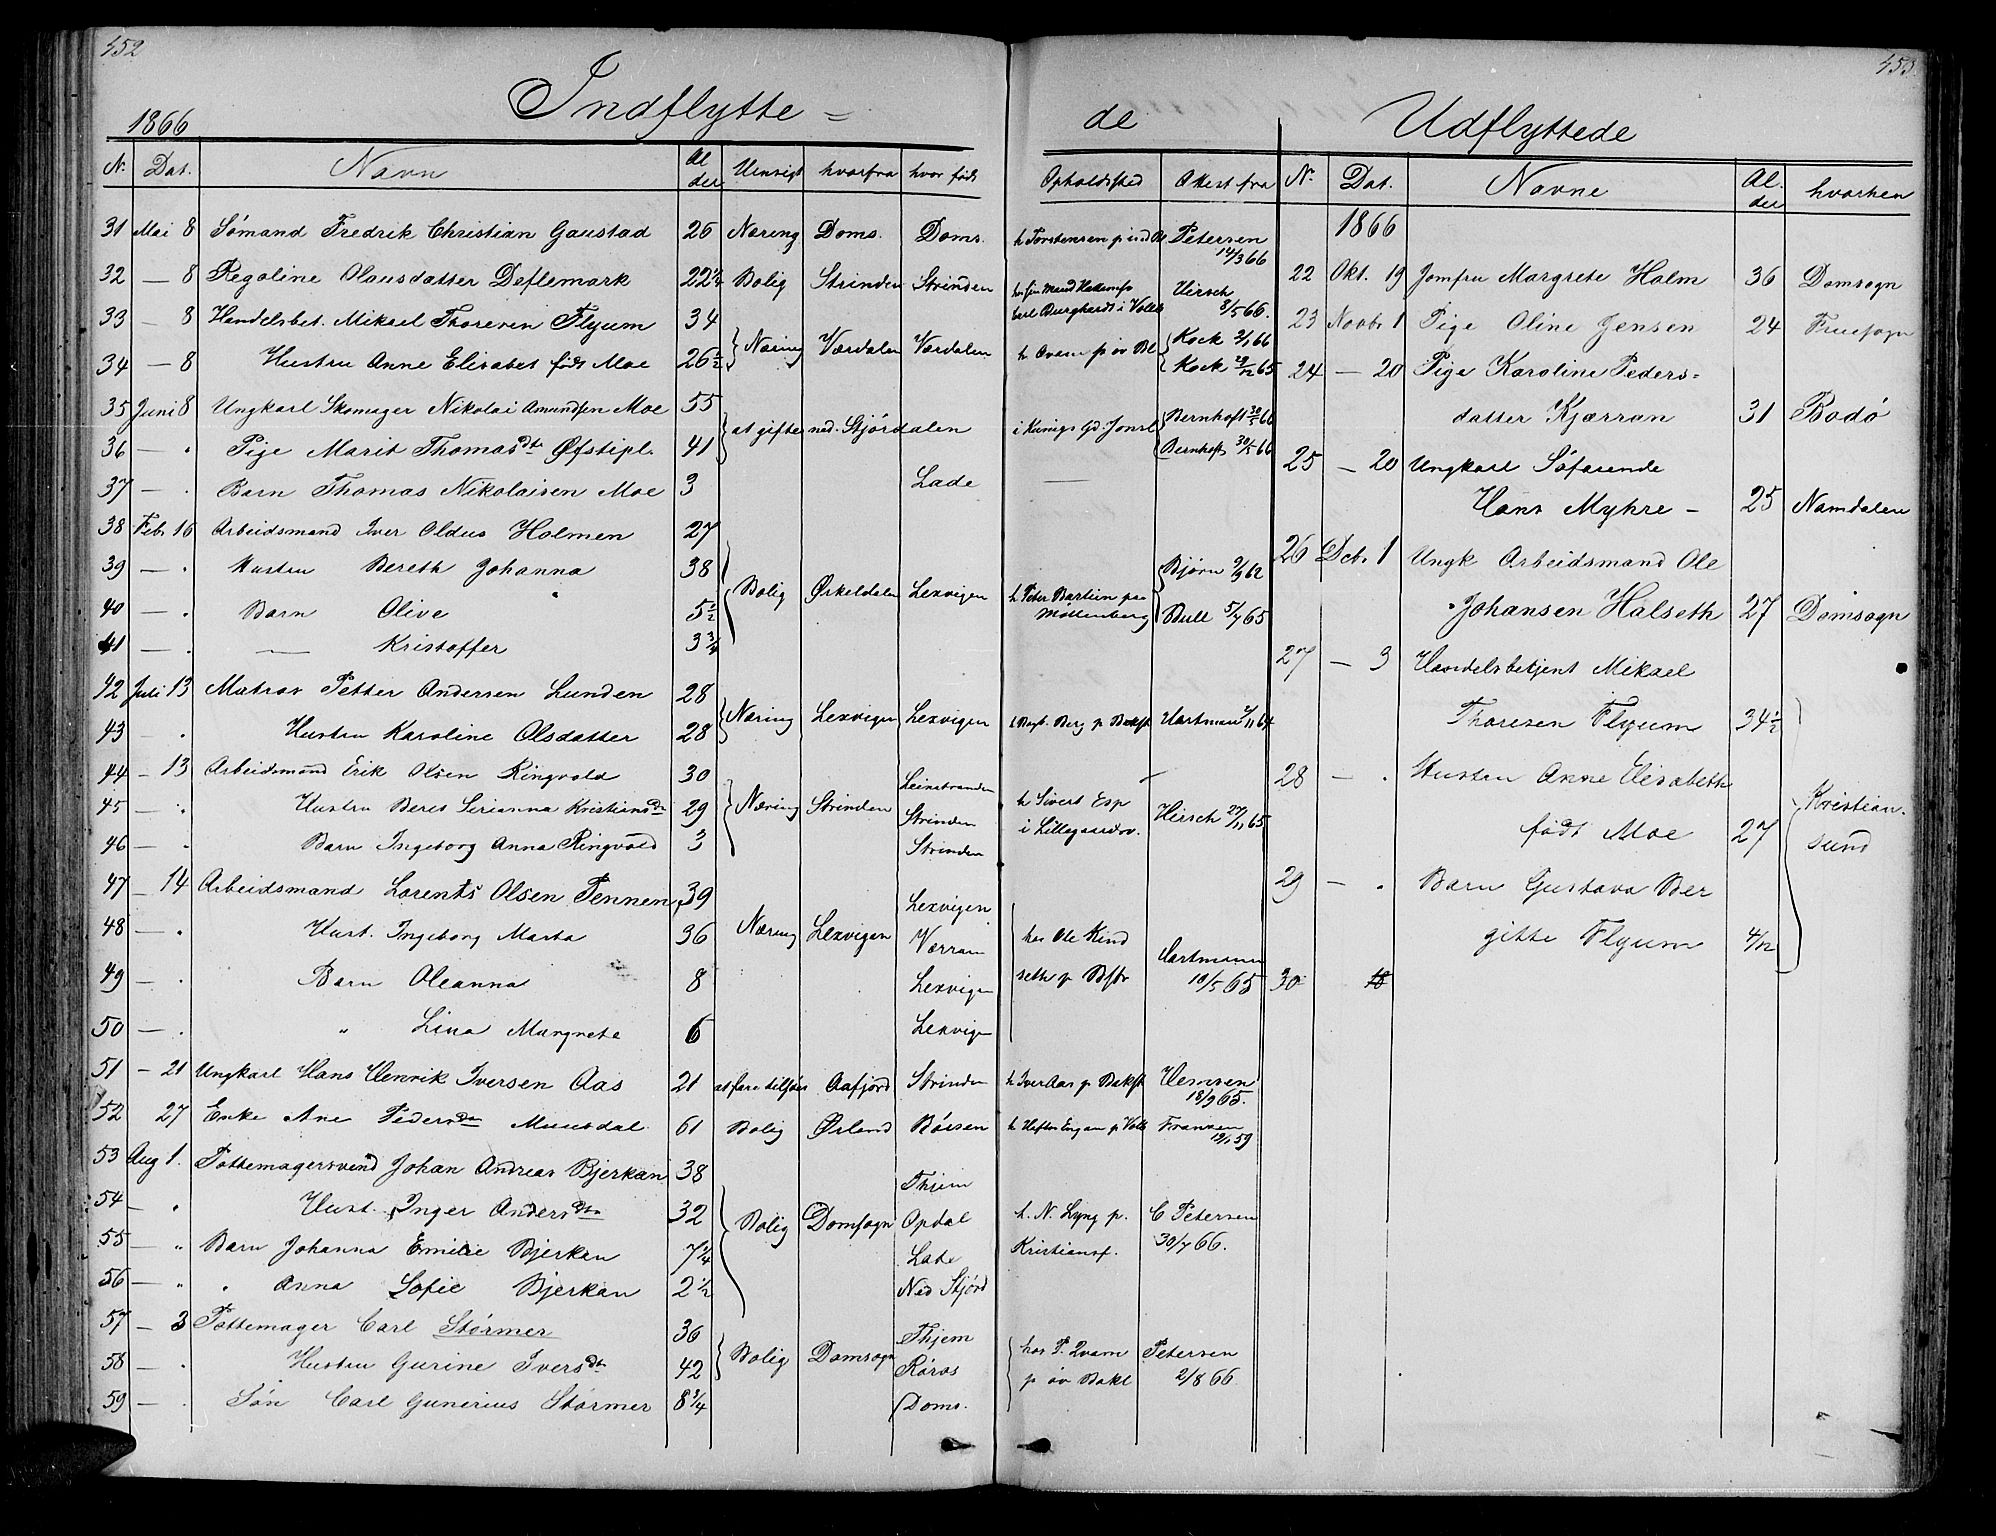 452
453
Indflytte=
de
Udflyttede
1866
N. Dat. Navn Alder Uensigt hvorfra hvor født Opholdsted Attest fra
31 Mai 8 Sømand Fredrik Christian Gaustad 26 Næring Doms. Doms. Petersen 14/3 66
32 — 8 Regoline Olausdatter Deflemark 22 1/4 Bolig Strinden Strinden Carl Burghardt i Hirsch 8/5 66.
33 — 8 Handelsbet. Mikael Thoresen Flyum 34 Næring Værdalen Værdalen Kock 2/1 66
34 — 8 Hustru Anne Elisabet født Moe 26 1/2 Kock 29/12 65
35 Juni 8 Ungkarl Skomager Nikolai Amundsen Moe 55 at gifte ned. Stjørdalen Bernhoft 30/5 66
36 — " Pige Marit Thomasdtr Øfstipl. 41 Bernhoft 30/5 66
37 — . Barn Thomas Nikolaisen Moe 3 Lade —
38 Feb. 16 Arbeidsmand Iver Oldus Holmen 27
39 — . Hustru Bereth Johanna 38 Bolig Ørkedalen Lexvigen h Peter Bartien paa Møllenberg Bjørn 9/9 62
40 — . Barn Olive 5 1/2 Bull 5/7 65
41 — . — Kristoffer 3 3/4
42 Juli 13 Matros Petter Andersen Lunden 28 Næring Lexvigen Lexvigen Berg p Baksl Hartmann
43 — . Hustru Karoline Olsdatter 28
44 — 13 Arbeidsmand Erik Olsen Ringvold 30 Næring Strinden Leinstranden
45 — . Hustru Beret Serianna Kristiansdtr 29 Strinden h Sivert Esp i Lillegaardsv. Hirsch 27/11 65
46 — . Barn Ingeborg Anna Ringvold 3 Strinden
47 — 14 Arbeidsmand Lorents Olsen Tennen 39 Næring Lexvigen Lexvigen
48 — . Hust. Ingeborg Marta 36 Værran hos Ole Kindseth p Hartmann 10/5 65
49 — . Barn Oleanna 8 Lexvigen
50 — . " Lina Margrete 6 Lexvigen
51 — 21 Ungkarl Hans Henrik Iversen Aas 21 at fare tilsjøes Aafjord Strinden h Iver Aas p Baksl Hemsen 18/9 65.
52 27 Enke Ane Pedersdtr 61 Bolig Ørland Børsen Fransen
53 Aug 1. Pottemagersvend Johan Andreas Bjerkan 38 Bolig Domsogn
54 — " Hust. Inger Andersdtr 32 Opdal h. N. Lyng p. Kristiansf. C Petersen 30/7 66.
55 — " Barn Johanna Emilie Bjerkan 7 1/4 Lade
56 — " " Anna Sofie Bjerkan 2 1/2 Ned Stjørd
57 — 3 Pottemager Carl Størmer 36 Bolig Domsogn Thjem
58 — . Hustru Gurine Iversdtr 42 Røros hos P. Qvam p øv Bakl Petersen 2/8 66
59 — . Søn Carl Gunerius Størmer 8 3/4 Doms.
N. Dat. Navne Alder hvorhen
1866
22 Okt. 19 Jomfru Margrete Holm 36 Domsogn
23 Novbr 1 Pige Oline Jensen 24 Fruesogn
24 — 20 Pige Karoline Peders=
datter Kjærran 31 Bodø
25 — 20 Ungkarl Søfarende
Hans Myhre — 25 Namdalen
26 Decbr 1 Ungk Arbeidsmand Ole
Johansen Halseth 27 Domsogn
27 — 3 Handelsbetjent Mikael
Thoresen Flyum 34 1/2
28 — . Hustru Anne Elisabeth
født Moe 27 Kristiansund
29 — . Barn Gustava Ber
gitte Flyum 4/12
30 18